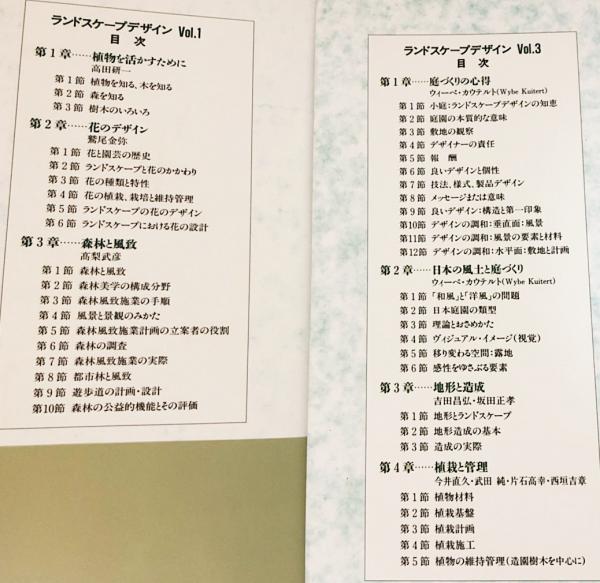 ランドスケープデザイン Vol.1
目 次
第1章……植物を活かすために
高田研一
第1節 植物を知る、木を知る
第2節 森を知る
第3節 樹木のいろいろ
第2章……花のデザイン
鷲尾金弥
第1節 花と園芸の歴史
第2節 ランドスケープと花のかかわり
第3節 花の種類と特性
第4節 花の植栽、栽培と維持管理
第5節 ランドスケープの花のデザイン
第6節 ランドスケープにおける花の設計
第3章……森林と風致
高梨武彦
第1節 森林と風致
第2節 森林美学の構成分野
第3節 森林風致施業の手順
第4節 風景と景観のみかた
第5節 森林風致施業計画の立案者の役割
第6節 森林の調査
第7節 森林風致施業の実際
第8節 都市林と風致
第9節 遊歩道の計画・設計
第10節 森林の公益的機能とその評価
ランドスケープデザイン Vol.3
目 次
第1章……庭づくりの心得
ウィーベ・カウテルト(Wybe Kuitert)
第1節 小庭:ランドスケープデザインの知恵
第2節 庭園の本質的な意味
第3節 敷地の観察
第4節 デザイナーの責任
第5節 報 酬
第6節 良いデザインと個性
第7節 技法、様式、製品デザイン
第8節 メッセージまたは意味
第9節 良いデザイン:構造と第一印象
第10節 デザインの調和:垂直面:風景
第11節 デザインの調和:風景の要素と材料
第12節 デザインの調和:水平面:敷地と計画
第2章……日本の風土と庭づくり
ウィーベ・カウテルト(Wybe Kuitert)
第1節 「和風」と「洋風」の問題
第2節 日本庭園の類型
第3節 理論とおさめかた
第4節 ヴィジュアル・イメージ(視覚)
第5節 移り変わる空間:露地
第6節 感性をゆさぶる要素
第3章……地形と造成
吉田昌弘・坂田正孝
第1節 地形とランドスケープ
第2節 地形造成の基本
第3節 造成の実際
第4章……植栽と管理
今井直久・武田 純・片石高幸・西垣吉章
第1節 植物材料
第2節 植栽基盤
第3節 植栽計画
第4節 植栽施工
第5節 植物の維持管理(造園樹木を中心に)